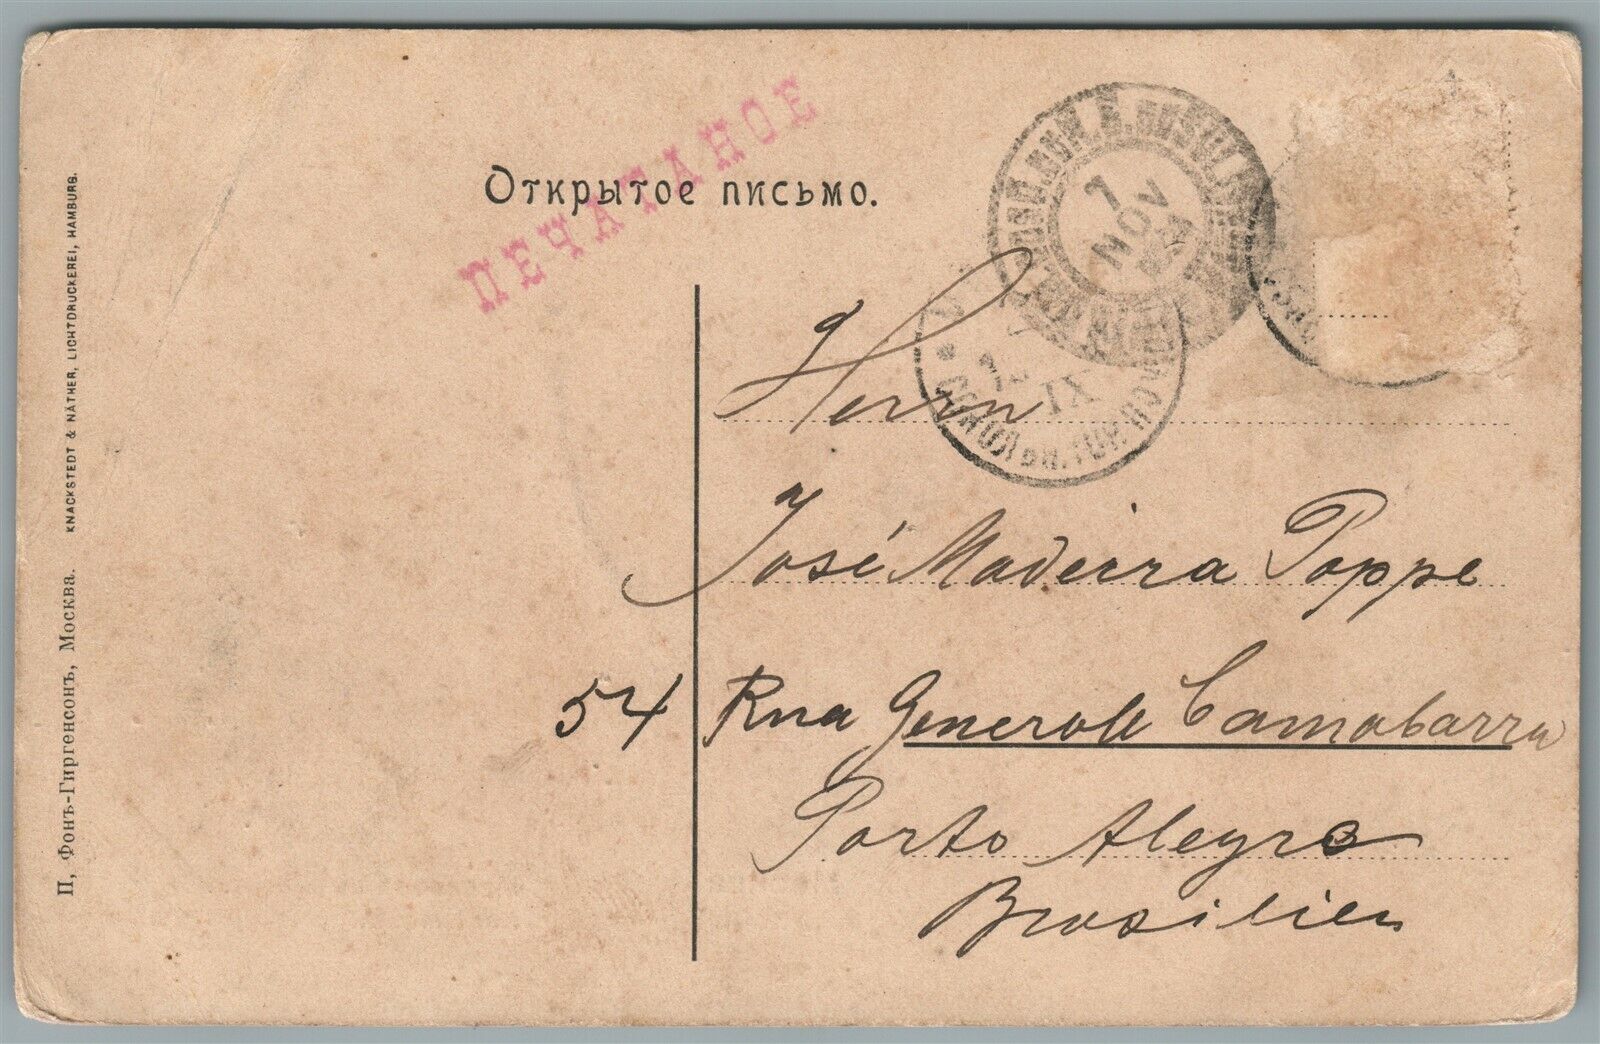 Открытое письмо.
ПЕЧАТАНОЕ
7
NOV
IX
Herrn
José Madeira Poppe
54 Rua Generale Camabarra
Porto Alegre
Brasilien
П, Фонъ-Гиргенсонъ, Москва. KNACKSTEDT & NÄTHER, LICHTDRUCKEREI, HAMBURG.